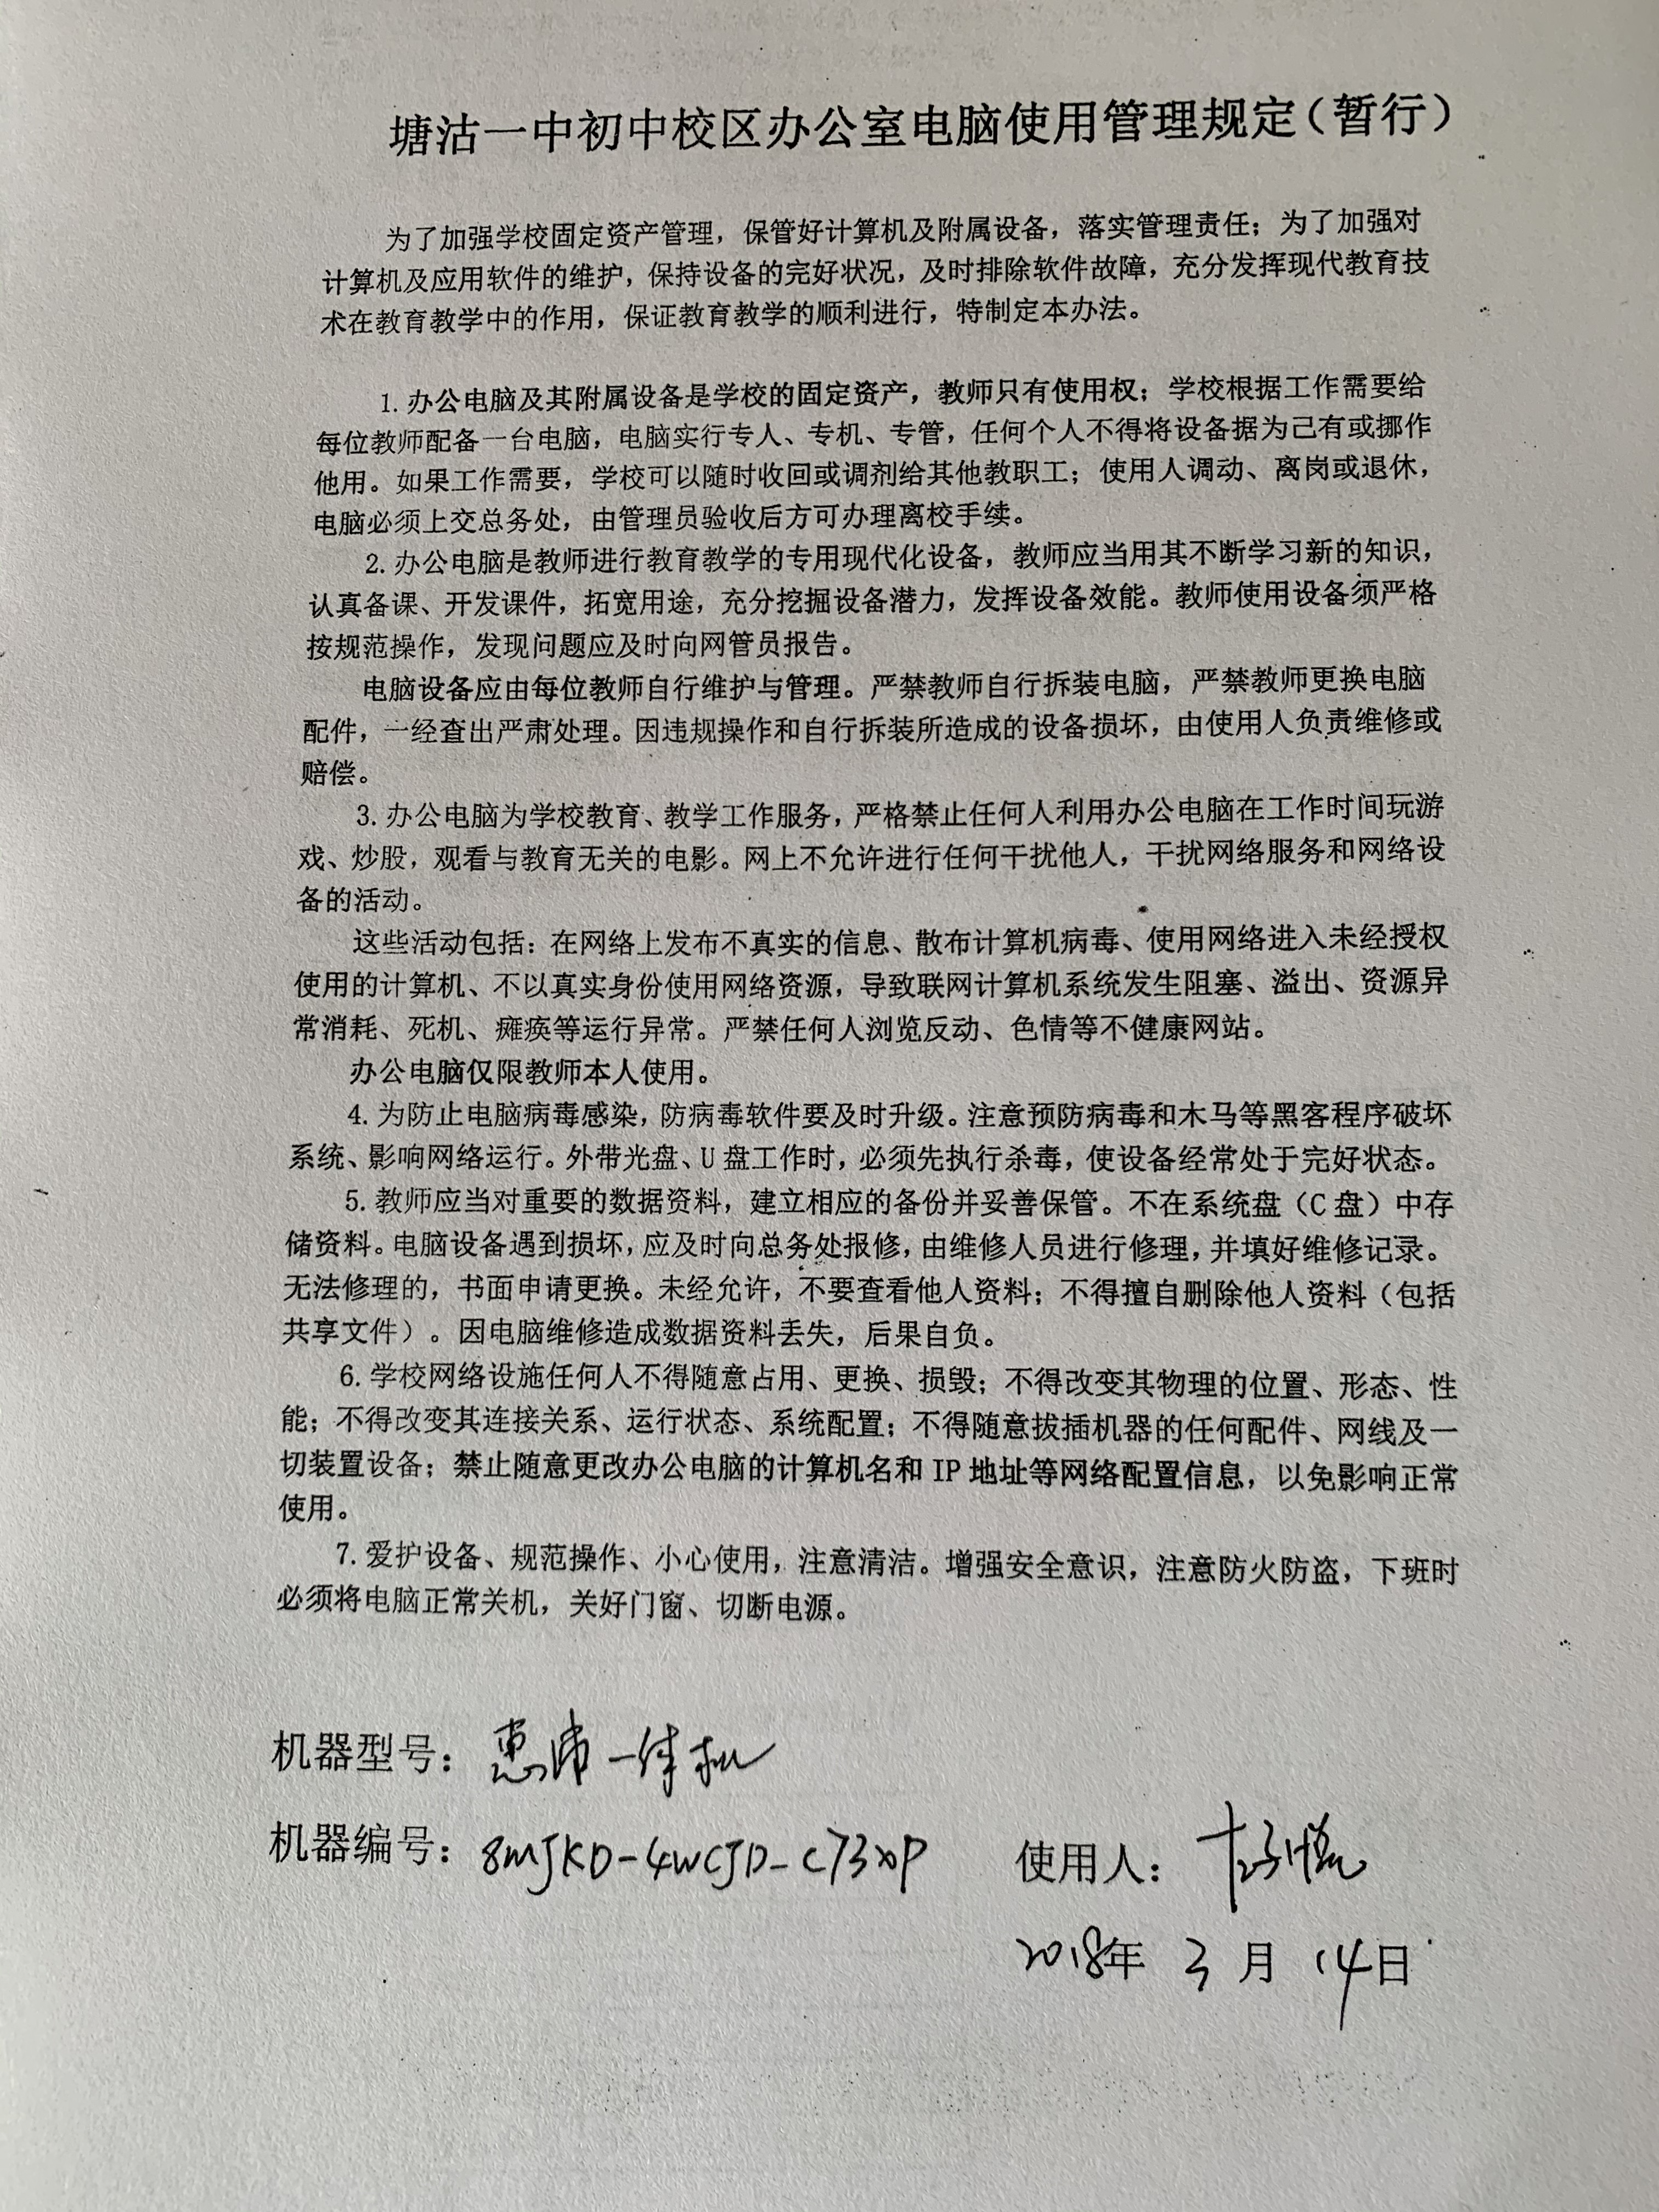 塘沽一中初中校区办公室电脑使用管理规定（暂行）
为了加强学校固定资产管理，保管好计算机及附属设备，落实管理责任；为了加强对
计算机及应用软件的维护，保持设备的完好状况，及时排除软件故障，充分发挥现代教育技
术在教育教学中的作用，保证教育教学的顺利进行，特制定本办法。
1.办公电脑及其附属设备是学校的固定资产，教师只有使用权；学校根据工作需要给
每位教师配备一台电脑，电脑实行专人、专机、专管，任何个人不得将设备据为己有或挪作
他用。如果工作需要，学校可以随时收回或调剂给其他教职工；使用人调动、离岗或退休，
电脑必须上交总务处，由管理员验收后方可办理离校手续。
2.办公电脑是教师进行教育教学的专用现代化设备，教师应当用其不断学习新的知识，
认真备课、开发课件，拓宽用途，充分挖掘设备潜力，发挥设备效能。教师使用设备须严格
按规范操作，发现问题应及时向网管员报告。
电脑设备应由每位教师自行维护与管理。严禁教师自行拆装电脑，严禁教师更换电脑
配件，一经查出严肃处理。因违规操作和自行拆装所造成的设备损坏，由使用人负责维修或
赔偿。
3.办公电脑为学校教育、教学工作服务，严格禁止任何人利用办公电脑在工作时间玩游
戏、炒股，观看与教育无关的电影。网上不允许进行任何干扰他人，干扰网络服务和网络设
备的活动。
这些活动包括：在网络上发布不真实的信息、散布计算机病毒、使用网络进入未经授权
使用的计算机、不以真实身份使用网络资源，导致联网计算机系统发生阻塞、溢出、资源异
常消耗、死机、瘫痪等运行异常。严禁任何人浏览反动、色情等不健康网站。
办公电脑仅限教师本人使用。
4.为防止电脑病毒感染，防病毒软件要及时升级。注意预防病毒和木马等黑客程序破坏
系统、影响网络运行。外带光盘、U盘工作时，必须先执行杀毒，使设备经常处于完好状态。
5.教师应当对重要的数据资料，建立相应的备份并妥善保管。不在系统盘（C盘）中存
储资料。电脑设备遇到损坏，应及时向总务处报修，由维修人员进行修理，并填好维修记录。
无法修理的，书面申请更换。未经允许，不要查看他人资料；不得擅自删除他人资料（包括
共享文件）。因电脑维修造成数据资料丢失，后果自负。
6.学校网络设施任何人不得随意占用、更换、损毁；不得改变其物理的位置、形态、性
能；不得改变其连接关系、运行状态、系统配置；不得随意拔插机器的任何配件、网线及一
切装置设备；禁止随意更改办公电脑的计算机名和 IP 地址等网络配置信息，以免影响正常
使用。
7.爱护设备、规范操作、小心使用，注意清洁。增强安全意识，注意防火防盗，下班时
必须将电脑正常关机，关好门窗、切断电源。
机器型号：惠浦一体机
机器编号：8MJKD-4WCJD-C73XP
使用人：
2018年 3 月 14日